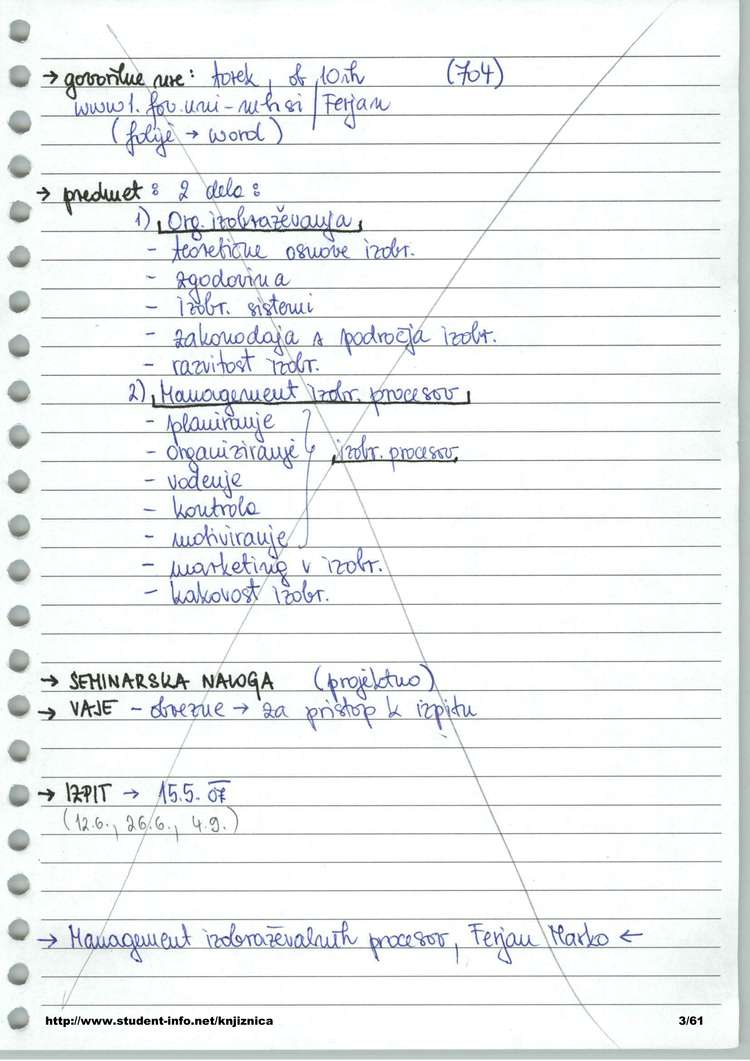 → govorilne ure: torek, ob 10ih (704)
www1.fov.uni-mb.si / Ferjan
(folije → word)
→ predmet: 2 dela:
1) Org. izobraževanja
- teoretične osnove izobr.
- zgodovina
- izobr. sistemi
- zakonodaja s področja izobr.
- razvitost izobr.
2) Management izobr. procesov
- planiranje
- organiziranje izobr. procesov
- vodenje
- kontrola
- motiviranje
- marketing v izobr.
- kakovost izobr.
→ SEMINARSKA NALOGA (projektno)
→ VAJE - obvezne → za pristop k izpitu
→ IZPIT → 15.5. 07
(12.6., 26.6., 4.9.)
→ Management izobraževalnih procesov, Ferjan Marko ←
http://www.student-info.net/knjiznica 3/61